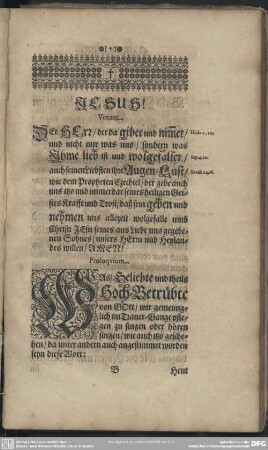 JESUS!
Votum.
DEr HErr/ der da gibet und nimet/
und nicht nur was uns / sondern was
Ihme lieb ist und wolgefället/
auch seinen Liebsten ihre Augen-Lust/
wie dem Propheten Ezechiel/ der gebe auch
uns itzo und immerdar seines heiligen Gei-
stes Krafft und Trost/ daß sein geben und
nehmen uns allezeit wolgefalle umb
Christi JEsu seines aus Liebe uns gegebe-
nen Sohnes / unsers HErrn und Heylan-
des willen/ AMEN!
Hiob. 1, 21.
Sap. 4, 10.
Ezech. 24, 16.
Proloqvium.
WAs/ Geliebte und theils
Hoch-Betrübte
von GOtt/ wir gemeinig-
lich im Trauer-Gange pfle-
gen zu singen oder hören
singen/ wie auch itzo gesche-
hen/ da unter andern auch angestimmet worden
seyn diese Wort:
B
Heut